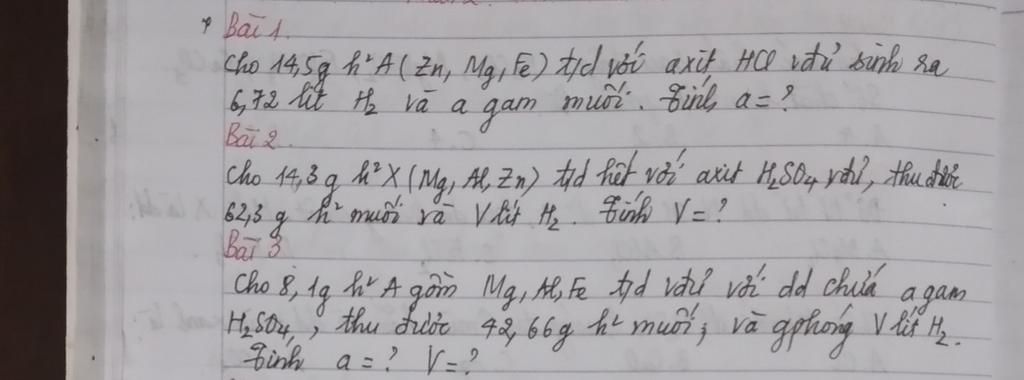 Bài 1.
Cho 14,5g h² A (Zn, Mg, Fe) t/d với axit HCl vđủ sinh ra
6,72 lít H₂ và a gam muối. Tính a = ?
Bài 2.
Cho 14,3 g h² X (Mg, Al, Zn) t/d hết với axit H₂SO₄ vđủ, thu được
62,3 g h² muối và V lít H₂. Tính V = ?
Bài 3
Cho 8,1g h² A gồm Mg, Al, Fe t/d vđủ với dd chứa a gam
H₂SO₄, thu được 42,66g h² muối; và gphóng V lít H₂.
Tính a = ? V = ?